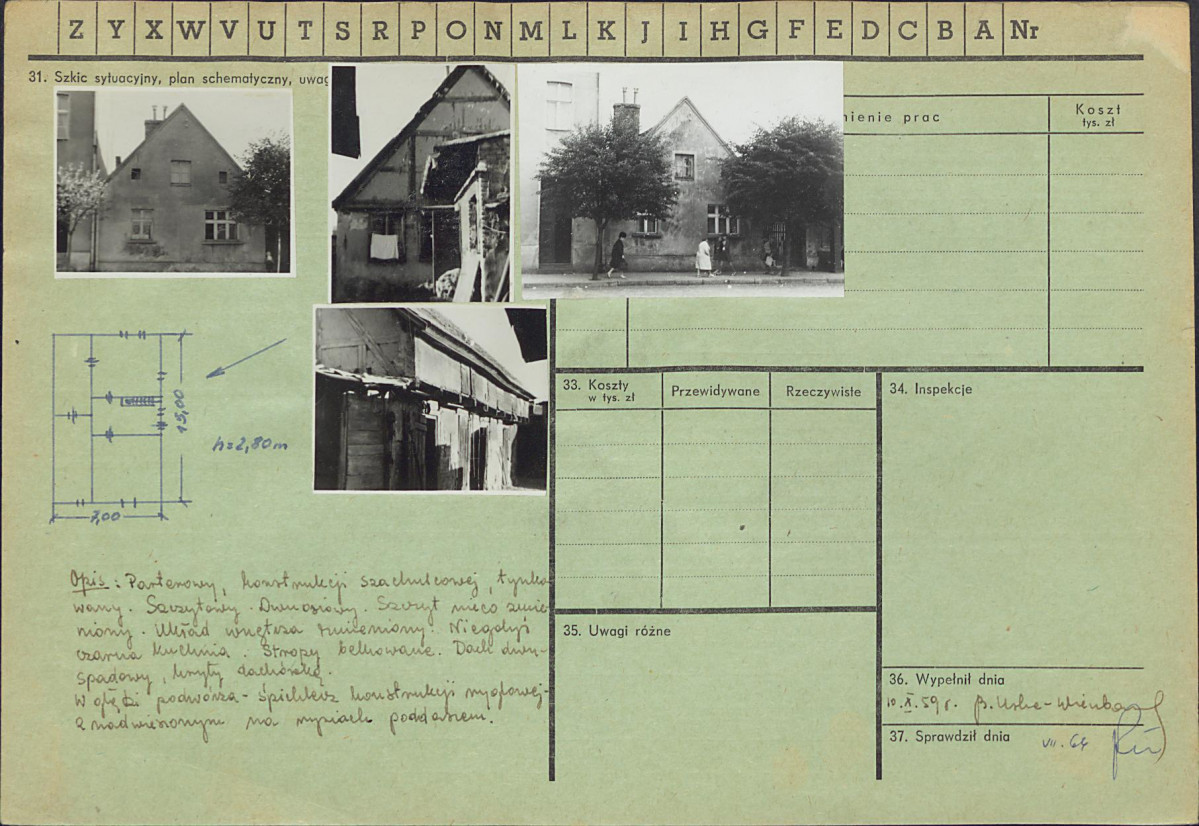 Z Y X W V U T S R P O N M L K J I H G F E D C B A Nr
31. Szkic sytuacyjny, plan schematyczny, uwag
nienie prac
Koszt
tys. zł
15,00
h=2,80m
7,00
33. Koszty
w tys. zł
Przewidywane
Rzeczywiste
34. Inspekcje
Opis: Parterowy, konstrukcji szachulcowej, tynko
wany. Szczytowy. Dwuosiowy. Szczyt nieco zmie
niony. Układ wnętrza zmieniony. Niegdyś
czarna kuchnia. Stropy belkowane. Dach dwu-
spadowy, kryty dachówką.
W głębi podwórza - spichlerz konstrukcji ryglowej
z nadwieszonym na rysiach poddaszem.
35. Uwagi różne
36. Wypełnił dnia
10.X.59 r. B.
37. Sprawdził dnia
VII. 64